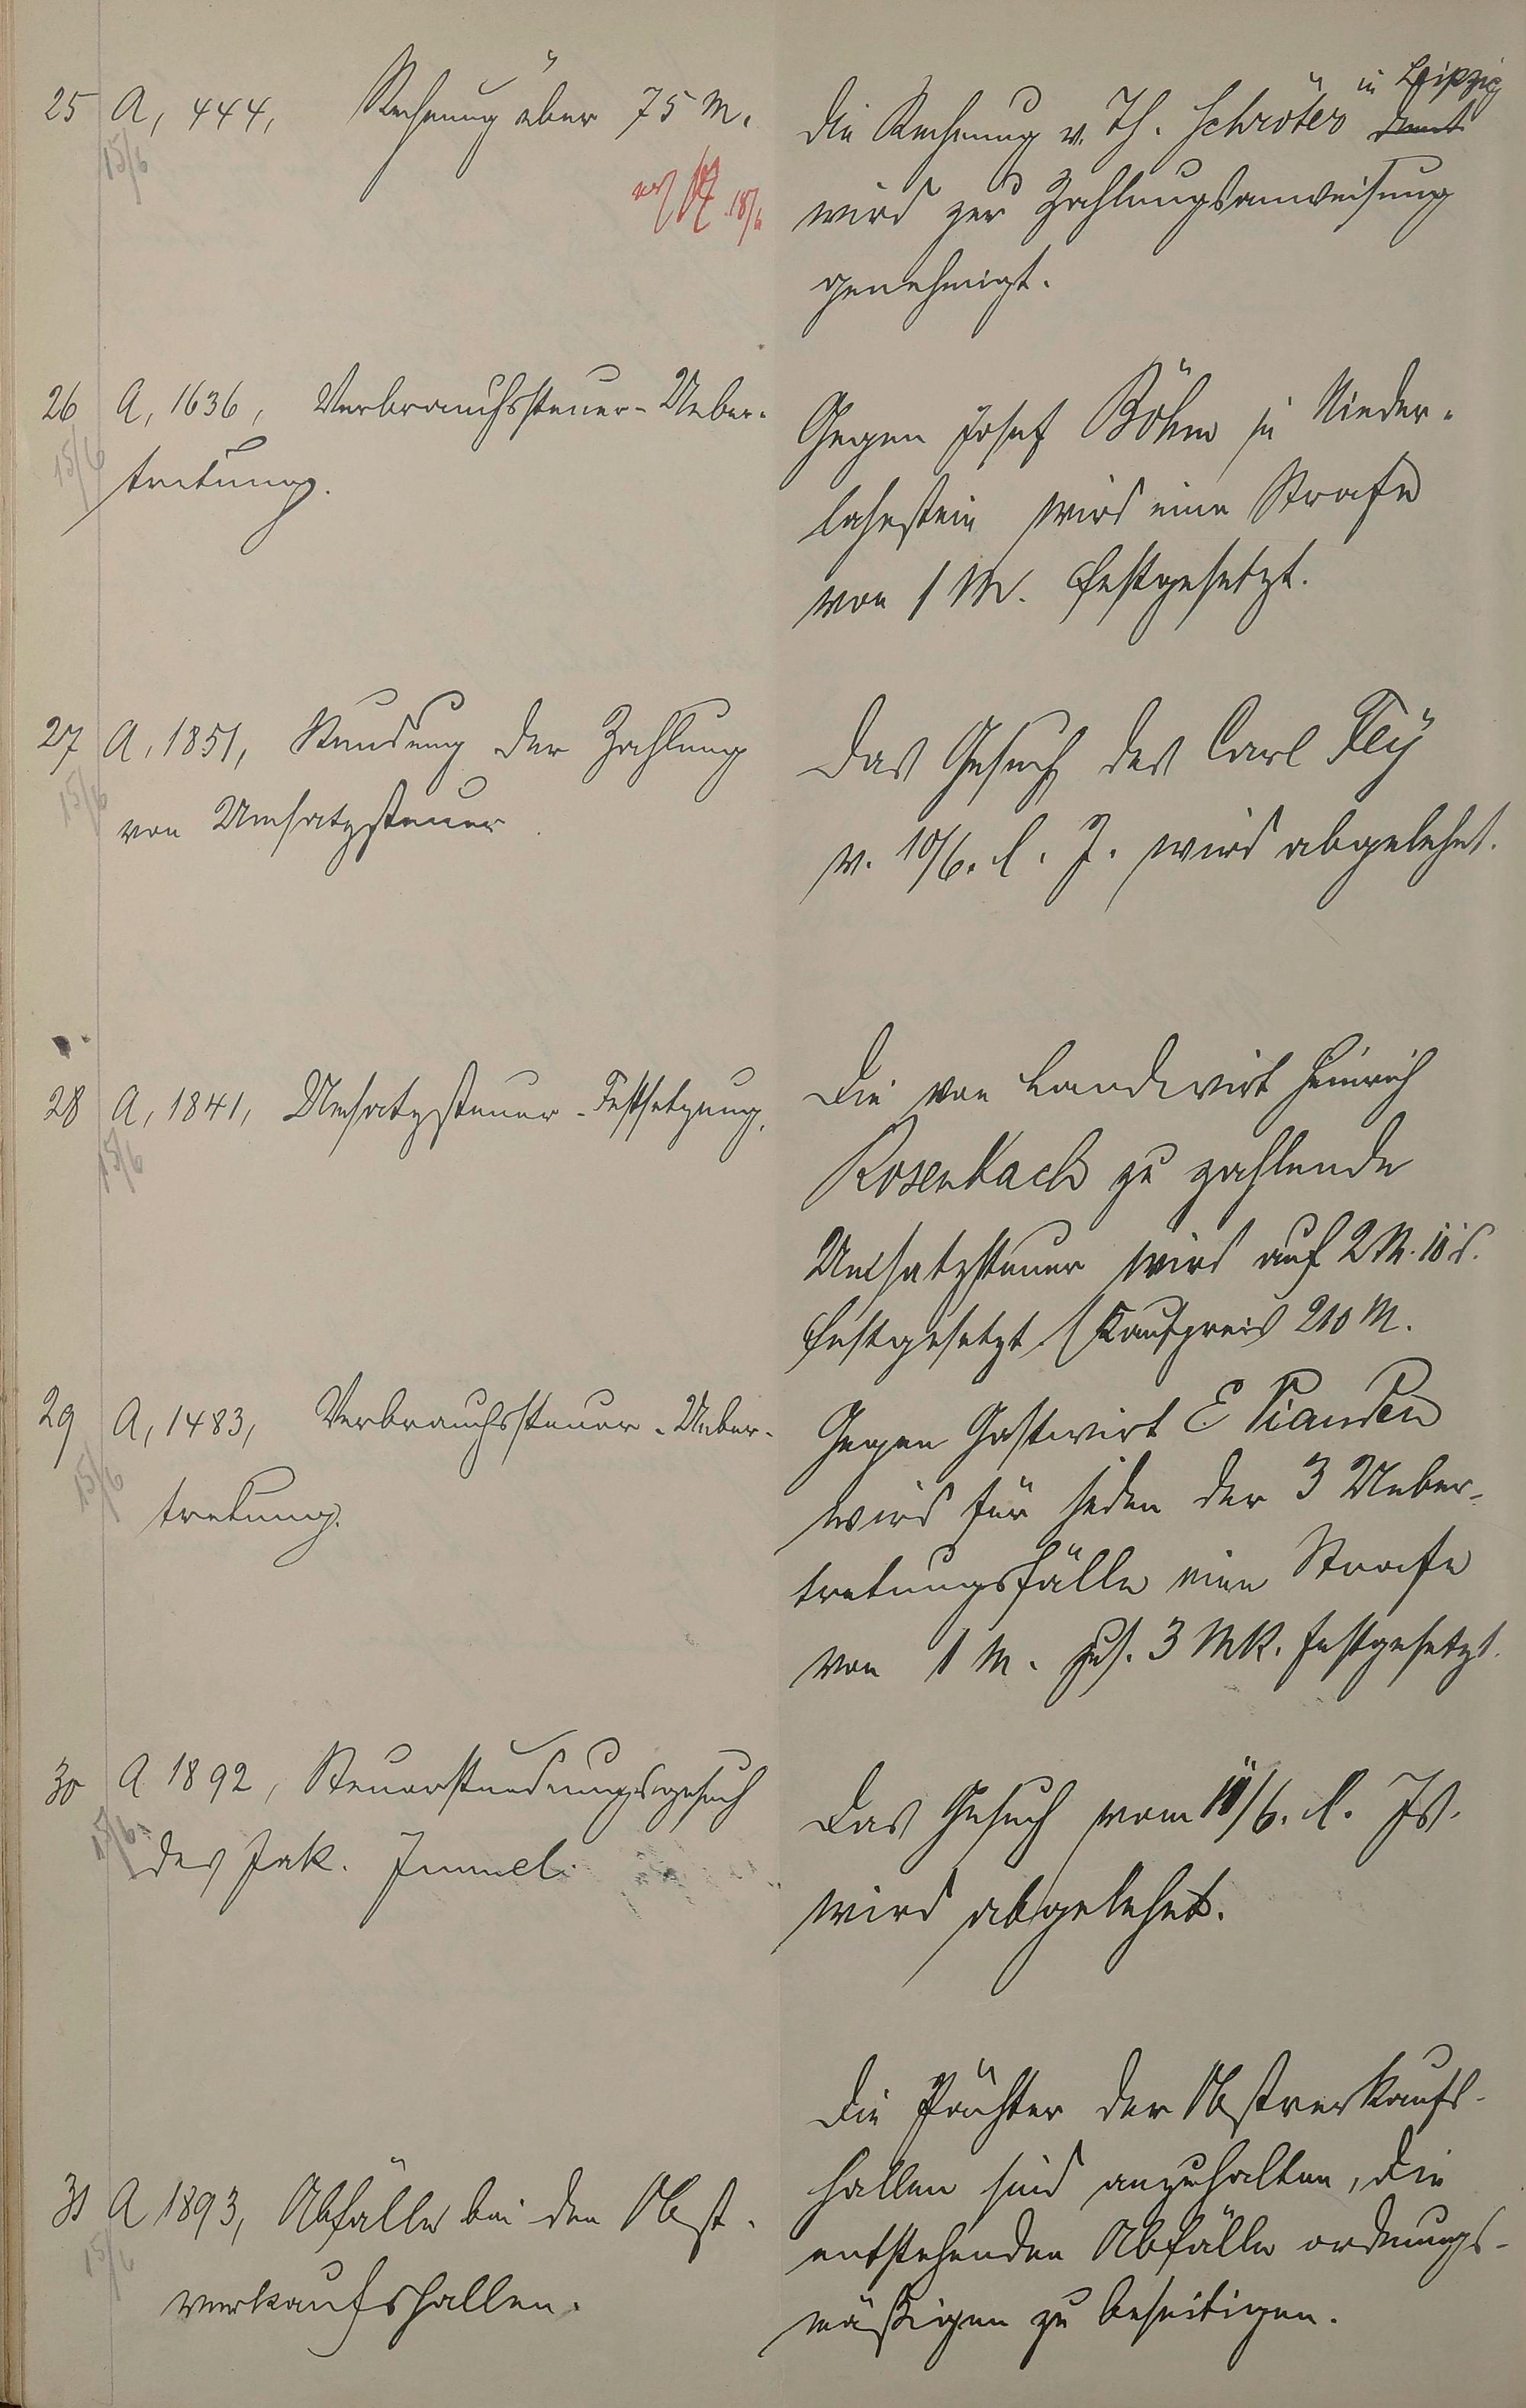 25 A, 444, Rechnung über 75 M.
15/6
18/6
Die Rechnung v. Th. Schröter in Leipzig
wird zur Zahlungsanweisung
genehmigt.
26 A, 1636, Verbrauchssteuer-Ueber-
15/6
tretung.
Gegen Josef Böhm in Nieder-
lahnstein wird eine Strafe
von 1 M. festgesetzt.
27 A, 1851, Stundung der Zahlung
15/6
von Umsatzsteuer
Das Gesuch des Carl Fey
v. 10/6. l. J. wird abgelehnt.
28 A, 1841, Umsatzsteuer-Festsetzung.
15/6
Die von Landwirt Heinrich
Rosenbach zu zahlende
Umsatzsteuer wird auf 2 M. 10 d.
festgesetzt (Kaufpreis 210 M.
29 A, 1483, Verbrauchssteuer-Ueber-
15/6
tretung.
Gegen Gastwirt E
wird für jeden der 3 Ueber-
tretungsfälle eine Strafe
von 1 M. zus. 3 Mk. festgesetzt.
30 A 1892, Steuerstundungsgesuch
15/6
des Jak. Immel.
Das Gesuch vom 11/6. l. Js.
wird abgelehnt.
31 A 1893, Abfälle bei den Obst-
15/6
verkaufshallen.
Die Pächter der Obstverkaufs-
hallen sind anzuhalten, die
entstehenden Abfälle ordnungs-
mäßigen zu beseitigen.